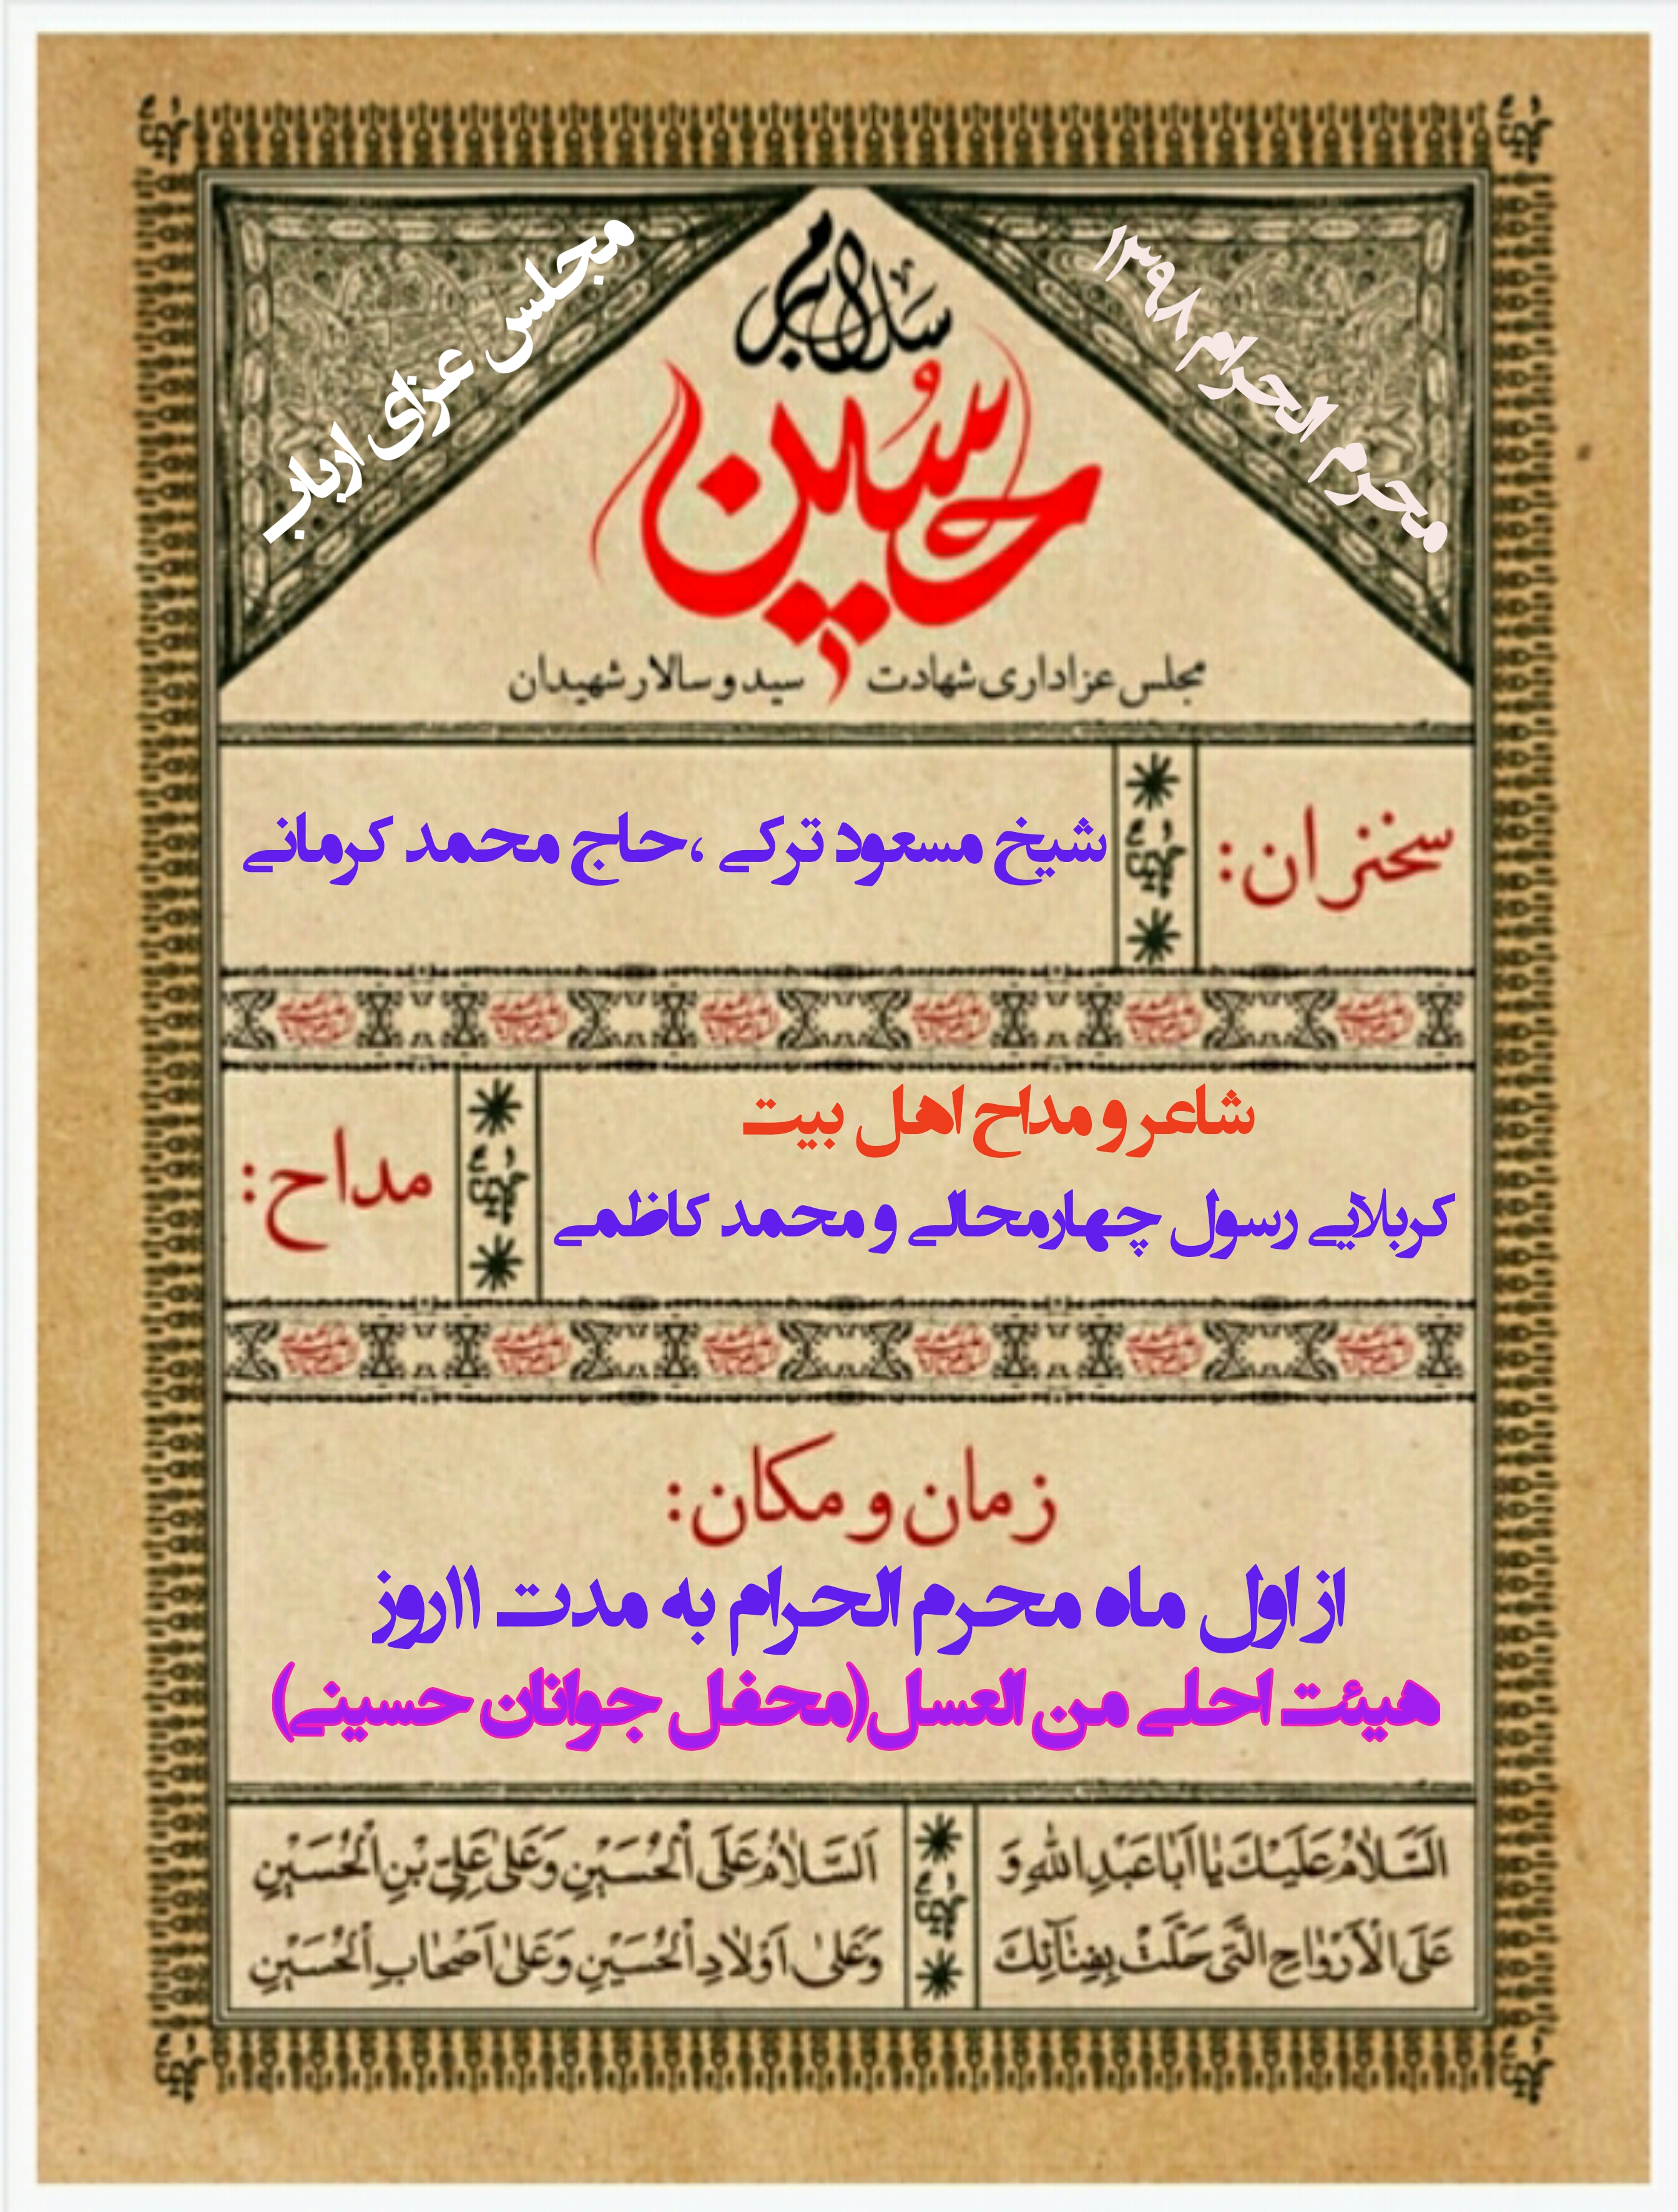 محرم الحرام ۱۳۹۸
مجلس عزای ارباب
سلام بر
حسین
مجلس عزاداری شهادت سید و سالار شهیدان
سخنران:
شیخ مسعود ترکے ،حاج محمد کرمانے
شاعر و مداح اهل بیت
مداح:
کربلایے رسول چهارمحالے و محمد کاظمے
زمان و مکان:
از اول ماه محرم الحرام به مدت ۱۱روز
هیئت احلے من العسل(محفل جوانان حسینے)
اَلسَّلاٰمُ عَلَیْكَ یٰا اَبٰا عَبْدِ اللهِ وَ
عَلَی الْاَرْوٰاحِ الَّتی حَلَّتْ بِفِنٰآئِكَ
اَلسَّلاٰمُ عَلَی الْحُسَیْنِ وَ عَلیٰ عَلِیِّ بْنِ الْحُسَیْنِ
وَ عَلیٰ اَوْلاٰدِ الْحُسَیْنِ وَ عَلیٰ اَصْحٰابِ الْحُسَیْنِ